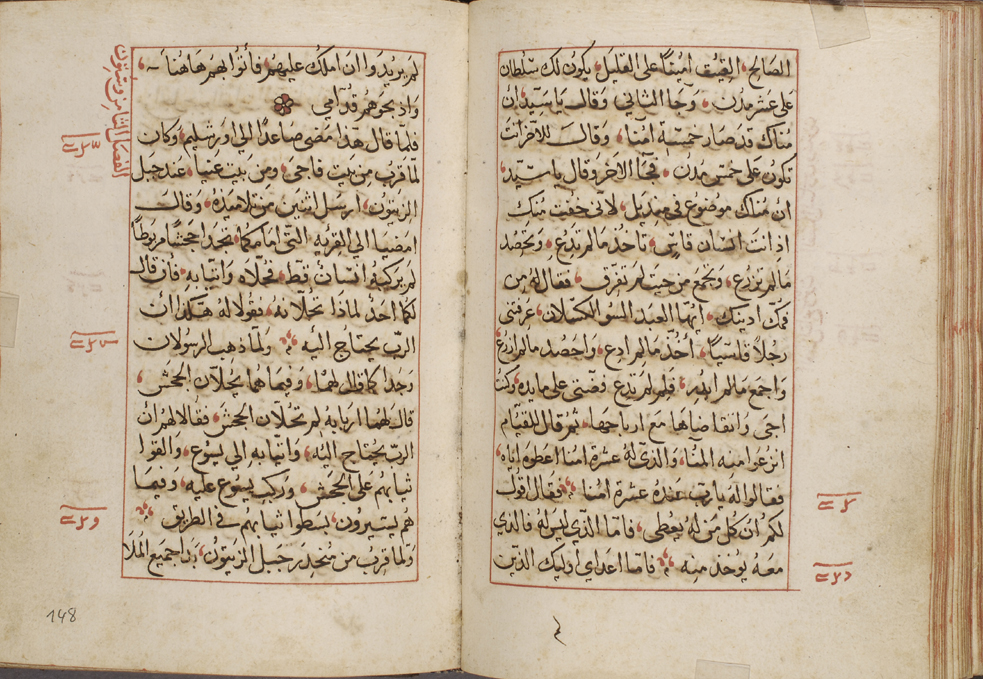 الصالح، الفيت امينًا على القليل، يكون لك سلطان
على عشر مدن، وجا الثاني وقال ياسيد ان
مناك قد صار خمسة امنا، وقال للاخر انت
تكون على خمس مدن، فجا الاخر وقال ياسيد،
ان مناك موضوع في منديل، لاني خفت منك
اذ انت انسان قاسي، تاخذ ما لم تدع، وتحصد
ما لم تزرع، وتجمع من حيث لم تفرق، فقال له من
فمك ادينك، ايها العبد السو الكسلان، عرفتني
رجلًا قاسيًا، اخذ ما لم ادع، واحصد ما لم ازرع
واجمع ما لم ابذر، فلم لم تدع فضتي على مايده وكنت
اجى وانقاضاها مع ارباحها، ثم قال للقيام
انزعوا منه المنا، والذي له عشرة امنا اعطوه اياه،
فقالوا له يارب عنده عشرة امنا، فقال اقول
لكم ان كل من له يعطى، فاما الذي ليس له فالذي
معه يوخذ منه، فاما اعداي اوليك الذين
لم يريدوا ان املك عليهم، فاتوا بهم هاهنا،
واذبحوهم قدامي
الفصل الثامن وستون
فلما قال هذا مضى صاعدًا الى اورشليم، وكان
لما قرب من بيت فاجى، ومن بيت عنيا، عند جبل
الزيتون، ارسل اثنين من تلاميذه، وقال
امضيا الى القريه التي امامكما، تجدا جحشًا مربوطًا
لم يركبه انسان قط، فحلاه واتيا به، فان قال
لكما احدٌ لماذا تحلانه، فقولا له هكذا ان
الرب يحتاج اليه، ولما ذهب الرسولان
وجدا كما قال لهما، وفيما هما يحلان الجحش،
قال لهما اربابه لم تحلان الجحش، فقالا لهم ان
الرب يحتاج اليه، واتيا به الى يسوع، والقوا
ثيابهم على الجحش، وركب يسوع عليه، وفيما
هم يسيرون، بسطوا ثيابهم في الطريق،
ولما قرب من منحدر جبل الزيتون، بدا جميع الملا
148